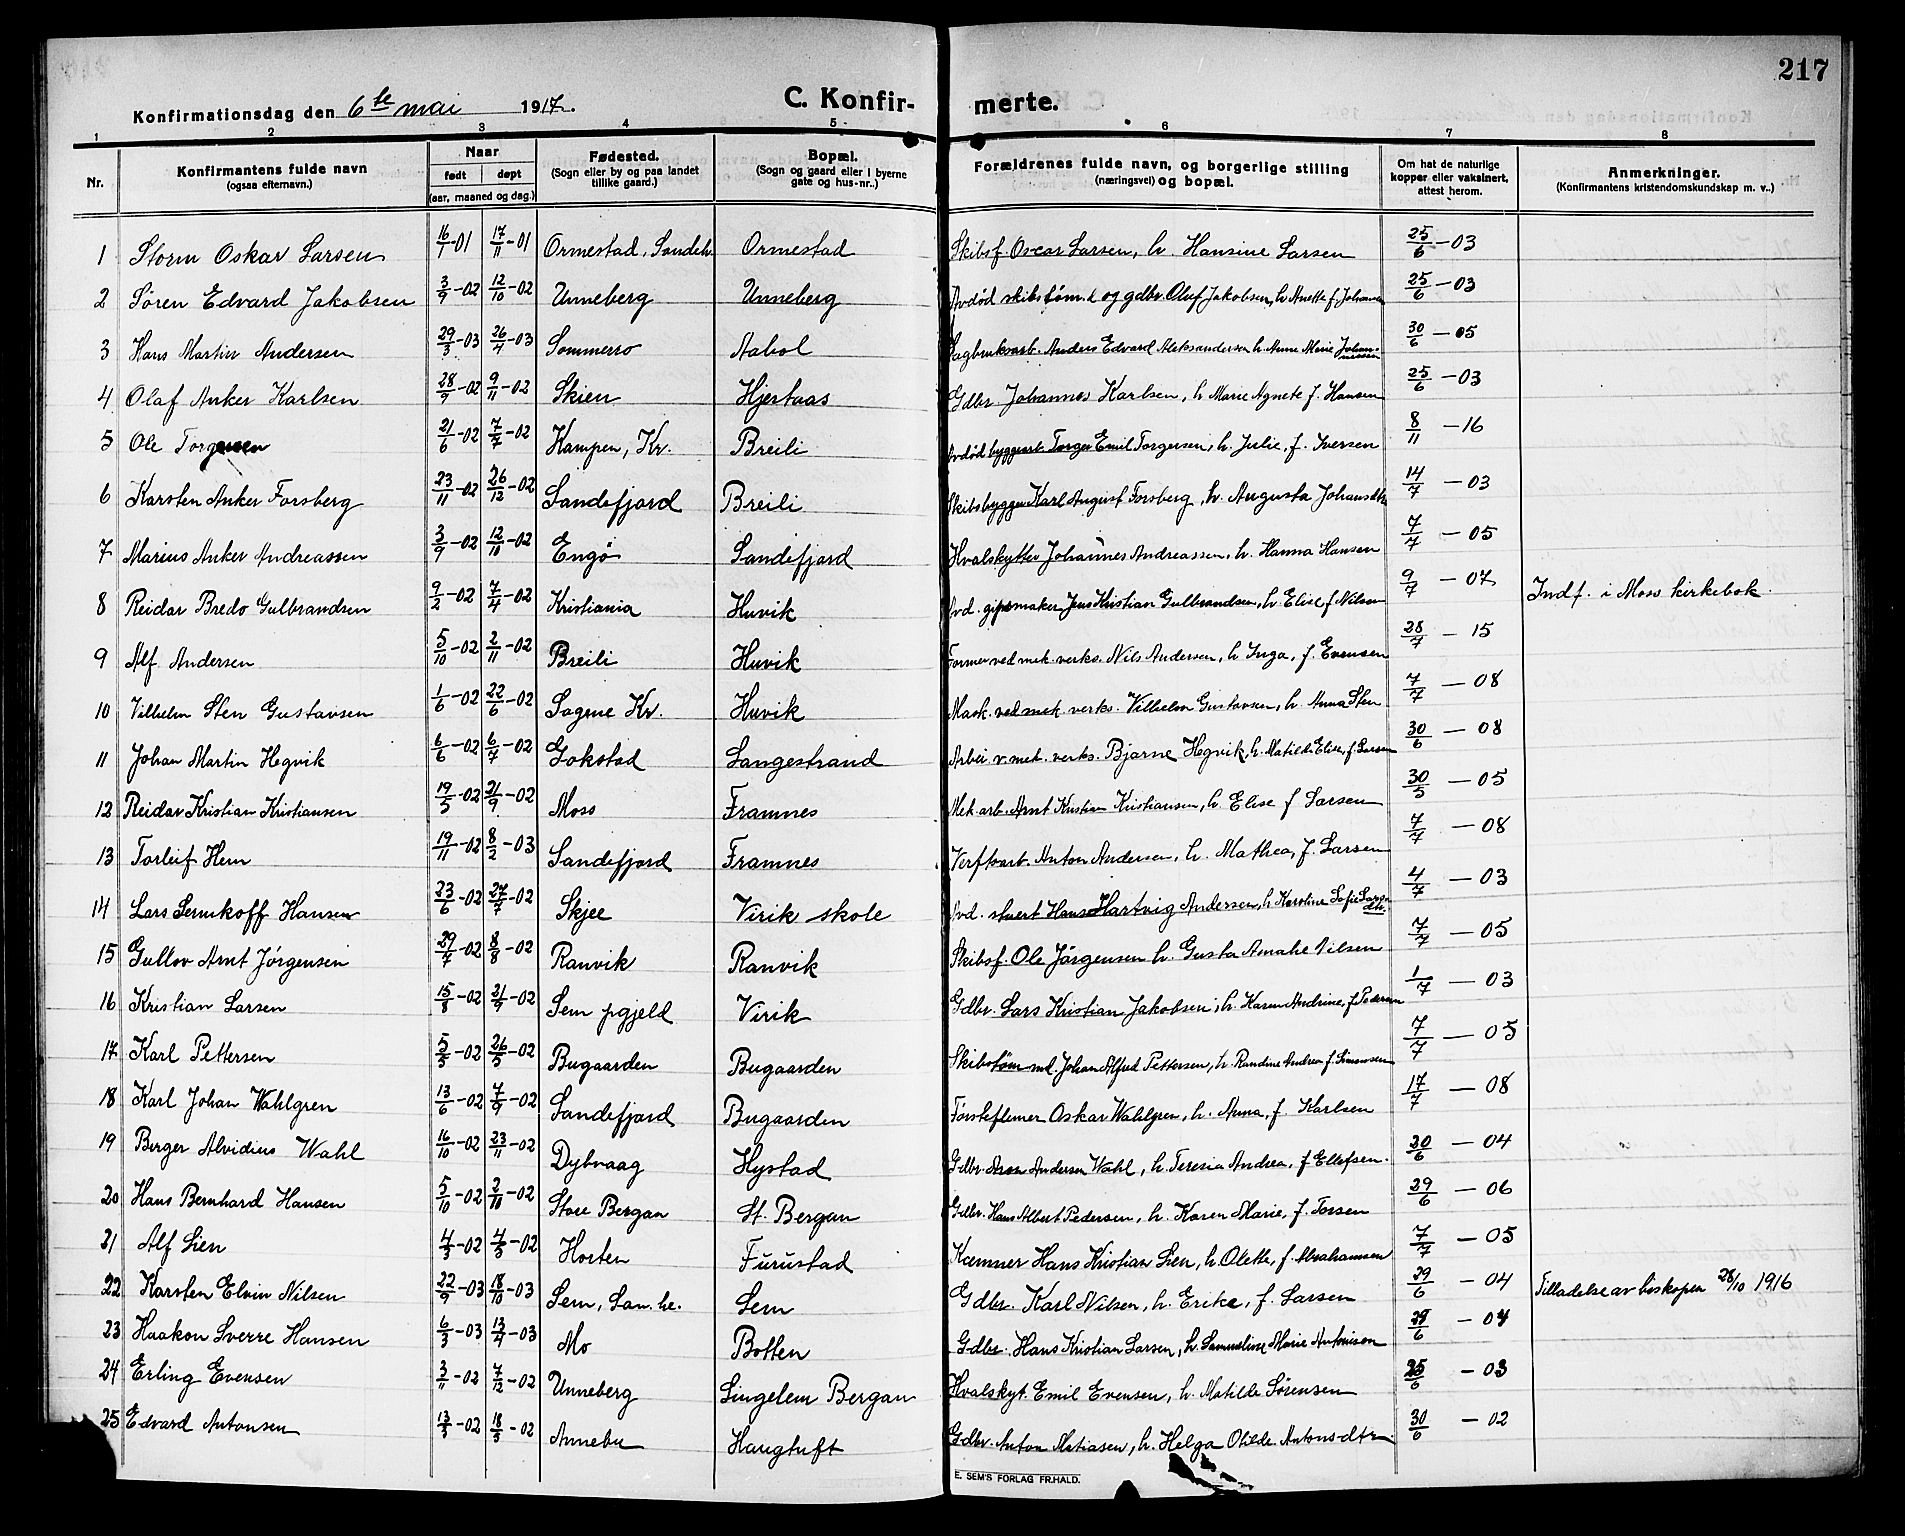 217
Konfirmationsdag den 6te mai 1917.
C. Konfir- merte.
1 2 3 4 5 6 7 8
Nr. Konfirmantens fulde navn (ogsaa efternavn.) Naar født døpt (aar, maaned og dag.) Fødested. (Sogn eller by og paa landet tillike gaard.) Bopæl. (Sogn og gaard eller i byerne gate og hus-nr..) Forældrenes fulde navn, og borgerlige stilling (næringsvei) og bopæl. Om hat de naturlige kopper eller vaksinert, attest herom. Anmerkninger. (Konfirmantens kristendomskundskap m. v..)
1 Storm Oskar Larsen 16/1-01 17/11-01 Ormestad, Sandeh. Ormestad Skibsf. Oscar Larsen, h. Hansine Larsen 25/6-03
2 Søren Edvard Jakobsen 3/9-02 12/10-02 Unneberg Unneberg Avdød skibstøm. og gdbr. Oluf Jakobsen, h. Anette f. Johansen 25/6-03
3 Hans Martin Andersen 29/3-03 26/4-03 Sommerro Aabol Sagbruksarb. Anders Edvard Aleksandersen h. Anne Marie Johannessen 30/6-05
4 Olaf Anker Karlsen 28/9-02 9/11-02 Skien Hjertaas Gdbr. Johannes Karlsen, h. Marie Agnete f. Hansen 25/6-03
5 Ole Torgersen 21/6-02 7/7-02 Kampen, Kr. Breili Avdød byggearb. Torger Emil Torgersen, h. Julie, f. Iversen 8/11-16
6 Karsten Anker Forsberg 23/11-02 26/12-02 Sandefjord Breili Skibsbygger Karl August Forsberg, h. Augusta Johansdtr 14/7-03
7 Marius Anker Andreassen 3/9-02 12/10-02 Engø Sandefjord Hvalskytter Johannes Andreassen, h. Hanna Hansen 7/7-05
8 Reidar Bredo Gulbrandsen 9/2-02 7/4-02 Kristiania Huvik Avd. gipsmaker Jens Kristian Gulbrandsen, h. Elise f. Nilsen 9/7-07 Indf. i Moss kirkebok.
9 Alf Andersen 5/10-02 2/11-02 Breili Huvik Former ved mek. verks. Nils Andersen, h. Inga, f. Evensen 28/7-15
10 Vilhelm Sten Gustavsen 1/6-02 22/6-02 Sagene Kr. Huvik Mask. ved mek. verks. Vilhelm Gustavsen, h. Anna Sten 7/7-08
11 Johan Martin Hegvik 6/6-02 6/7-02 Gokstad Langestrand Arbei v. mek. verks. Bjarne Hegvik, h. Matilde Elise, f. Larsen 30/6-08
12 Reidar Kristian Kristiansen 19/5-02 21/9-02 Moss Framnes Mek. arb. Arnt Kristian Kristiansen, h. Elise f Larsen 30/5-05
13 Torleif Hem 19/11-02 8/2-03 Sandefjord Framnes Verftsarb. Anton Andersen, h. Mathea, f. Larsen 7/7-08
14 Lars Semikoff Hansen 23/6-02 27/7-02 Skjee Virik skole Avd. stuert Hans Hartvig Andersen, h Karoline Sofie Larsdtr. 4/7-03
15 Gullov Arnt Jørgensen 29/4-02 8/8-02 Ranvik Ranvik Skibsf. Ole Jørgensen h. Gusta Amalie Nilsen 7/7-05
16 Kristian Larsen 15/8-02 21/9-02 Sem pgjeld Virik Gdbr. Lars Kristian Jakobsen, h. Karen Andrine, f Pedersen 1/7-03
17 Karl Pettersen 5/5-02 26/5-02 Bugaarden Bugaarden Skibstøm.md. Johan Alfred Pettersen, h. Randine Andrea f. Simonsen 7/7-05
18 Karl Johan Wahlgren 13/6-02 7/9-02 Sandefjord Bugaarden Førsteflenser Oskar Wahlgren, h. Anna, f. Karlsen 17/7-08
19 Berger Alvidius Wahl 16/10-02 23/11-02 Dybvaag Hystad Gdbr. Aron Andersen Wahl, h. Teresia Andrea, f Ellefsen. 30/6-04
20 Hans Bernhard Hansen 5/10-02 2/10-02 Store Bergan St. Bergan Gdbr. Hans Albert Pedersen, h. Karen Marie, f. Torsen 29/6-06
21 Alf Lien 4/3-02 4/5-02 Horten Furustad Kæmner Hans Kristian Lien, h. Olette, f. Abrahamsen 7/7-05
22 Karsten Elvin Nilsen 22/9-03 18/10-03 Sem, San. he. Sem Gdbr. Karl Nilsen, h. Erike, f. Larsen 29/6-04 Tilladelse av biskopen 28/10 1916
23 Haakon Sverre Hansen 6/3-03 13/4-03 Mo Botten Gdbr. Hans Kristian Larsen, h. Samueline Marie Antonisen 29/6-04
24 Erling Evensen 3/11-02 7/12-02 Unneberg Lingelem Bergan Hvalskyt. Emil Evensen, h. Matilde Sørensen 25/6-03
25 Edvard Antonsen 13/3-02 18/5-02 Annebu Haugtuft Gdbr. Anton Matiasen, h. Helga Otilde Antonsdtr. 30/6-02
E. SEM'S FORLAG FR.HALD.